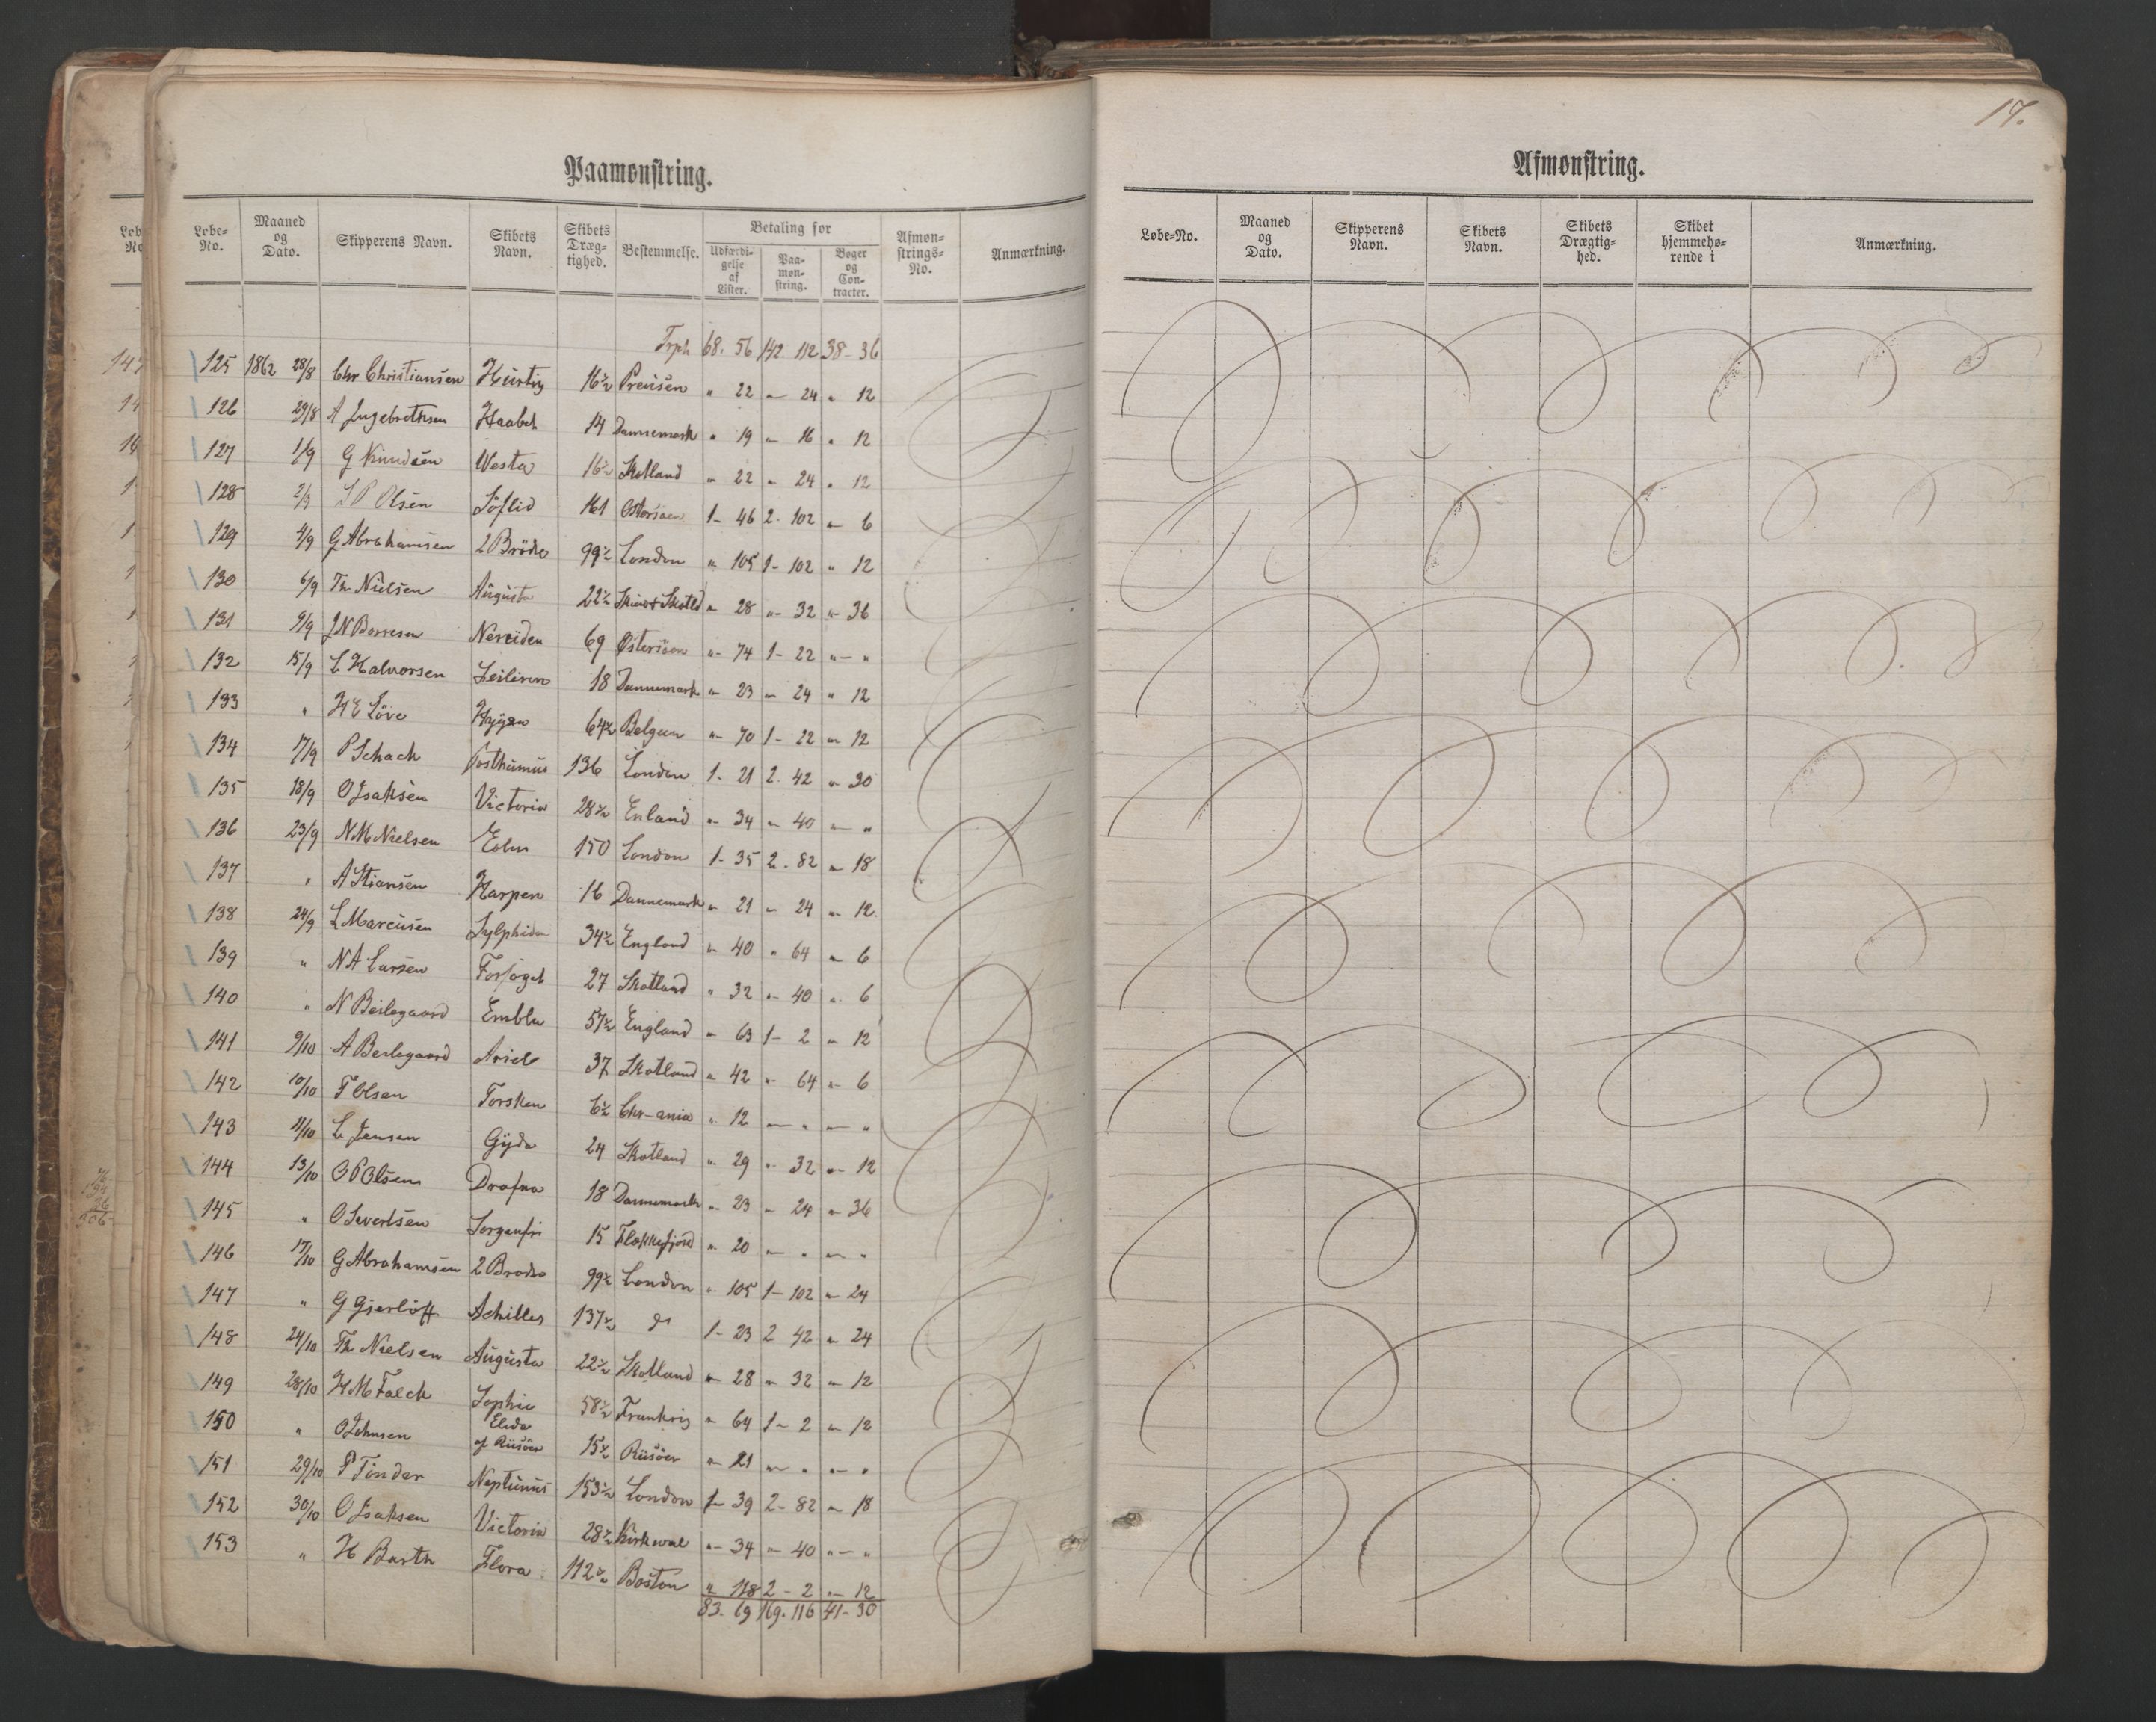 Paamønstring.
Løbe-No. Maaned og Dato. Skipperens Navn. Skibets Navn. Skibets Drægtighed. Bestemmelse. Betaling for Udfærdigelse af Lister. Paamønstring. Bøger og Contracter. Afmønstrings-No. Anmærkning.
Trph 68. 56 142. 112 38- 36
125 1862 28/8 Chr Christiansen Hurtig 16½ Preusen " 22 " 24 " 12
126 29/8 A Ingebrethsen Haabet 14 Dannemark " 19 " 16 " 12
127 1/9 G Knudsen Westa 16½ Skotland " 22 " 24 " 12
128 2/9 S P Olsen Söflid 161 Østersøen 1- 46 2. 102 " 6
129 4/9 G Abrahamsen 2 Brödre 99½ London " 105 1- 102 " 12
130 6/9 Th Nielsen Augusta 22½ Skotld " 28 " 32 " 36
131 9/9 J N Borresen Nereiden 69 Østersøen " 74 1- 22 " "
132 15/9 L Halvorsen Seileren 18 Dannemark " 23 " 24 " 12
133 " H E Löve 64½ Belgien " 70 1- 22 " 12
134 17/9 P Schach Posthumus 136 London 1- 21 2. 42 " 30
135 18/9 O Isaksen Victoria 28½ Enland " 34 " 40 " "
136 23/9 N M Nielsen Eolus 150 London 1- 35 2. 82 " 18
137 " A Stiansen Harpen 16 Dannemark " 21 " 24 " 12
138 24/9 L Marcusen Sylphiden 34½ England " 40 " 64 " 6
139 " N A Larsen Forsøget 27 Skotland " 32 " 40 " 6
140 " N Beilegaard Embla 57½ England " 63 1- 2 " 12
141 9/10 A Beilegaard Ariel 37 Skotland " 42 " 64 " 6
142 10/10 F Olsen Torsken 6½ Chr-ania " 12 " " " "
143 11/10 L Jensen Gyda 24 Skotland " 29 " 32 " 12
144 13/10 O P Olsen Drafna 18 Dannemark " 23 " 24 " 36
145 " O Sivertsen Sorgenfri 15 Flekkefjord " 20 " " " "
146 17/10 G Abrahamsen 2 Brødre 99½ London " 105 1- 102 " 24
147 " G Gjerløff Achilles 137½ do 1- 23 2 42 " 24
148 24/10 Th Nielsen Augusta 22½ Skotland " 28 " 32 " 12
149 28/10 H M Falck Sophie 58½ Frankrig " 64 1- 2 " 12
150 " O Johnsen Elida af Riisöer 15½ Riisöer " 21 " " " "
151 29/10 P Tønder Neptunus 153½ London 1- 39 2- 82 " 18
152 30/10 O Isaksen Victoria 28½ Kirkwal " 34 " 40 " "
153 " H Barth Flora 112½ Boston " 118 2- 2 " 12
83. 69 169. 116 41- 30
17.
Afmønstring.
Løbe-No. Maaned og Dato. Skipperens Navn. Skibets Navn. Skibets Drægtighed. Skibet hjemmehørende i Anmærkning.